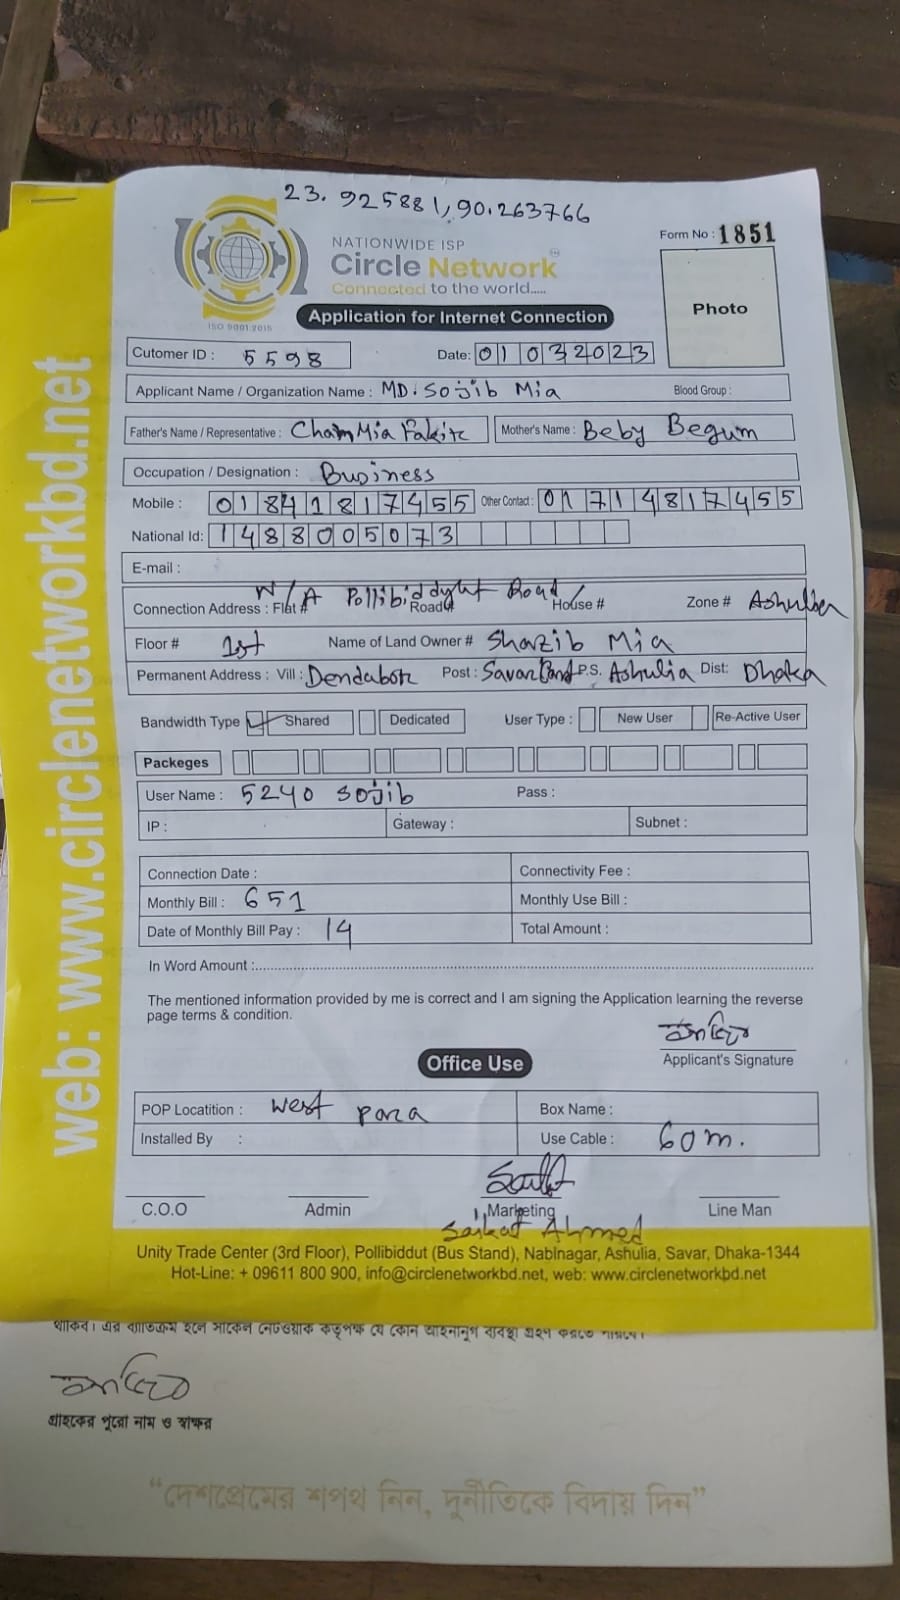 23.925881,90.263766
NATIONWIDE ISP
Circle Network
Connected to the world.....
ISO 9001:2015
Form No : 1851
Photo
Application for Internet Connection
Cutomer ID : 5598 Date: 01032023
Applicant Name / Organization Name : MD. Sojib Mia Blood Group :
Father's Name / Representative : Chan Mia Fakir Mother's Name : Beby Begum
Occupation / Designation : Business
Mobile : 01841817455 Other Contact : 01714817455
National Id: 1488005073
E-mail :
Connection Address : Flat # N/A Road# House # Zone #
Floor # 1st Name of Land Owner # Shazib Mia
Permanent Address : Vill : Post : Savar P.S. Ashulia Dist: Dhaka
Bandwidth Type Shared Dedicated User Type : New User Re-Active User
Packeges
User Name : 5240 sojib Pass :
IP : Gateway : Subnet :
Connection Date : Connectivity Fee :
Monthly Bill : 651 Monthly Use Bill :
Date of Monthly Bill Pay : 14 Total Amount :
In Word Amount :
The mentioned information provided by me is correct and I am signing the Application learning the reverse
page terms & condition.
Applicant's Signature
Office Use
POP Locatition : West para Box Name :
Installed By : Use Cable : 60m.
C.O.O Admin Marketing Line Man
Saikat Ahmed
Unity Trade Center (3rd Floor), Pollibiddut (Bus Stand), Nabinagar, Ashulia, Savar, Dhaka-1344
Hot-Line: + 09611 800 900, info@circlenetworkbd.net, web: www.circlenetworkbd.net
web: www.circlenetworkbd.net
থাকিব। এর ব্যতিক্রম হলে সার্কেল নেটওয়ার্ক কতৃপক্ষ যে কোন আইনানুগ ব্যবস্থা গ্রহণ করতে পারবে।
গ্রাহকের পুরো নাম ও স্বাক্ষর
“দেশপ্রেমের শপথ নিন, দুর্নীতিকে বিদায় দিন”